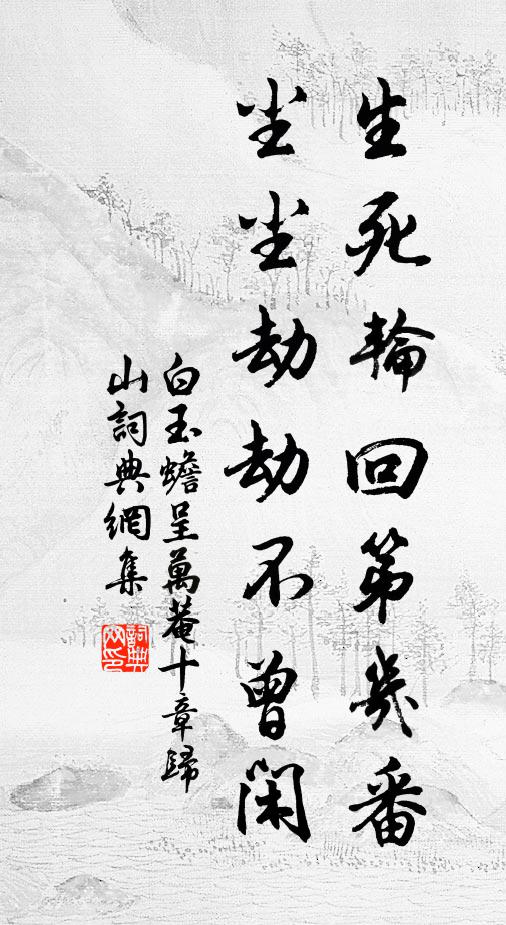 生死輪回第幾番
尘尘劫劫不曾閑
白玉蟾呈萬菴十章歸
山詞典網集
詞典
网印